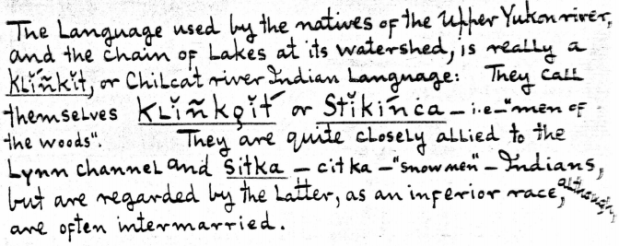 The Language used by the natives of the Upper Yukon river,
and the chain of Lakes at its watershed, is really a
Klĭñkĭt, or Chilcat river Indian Language: They call
themselves Klĭñkğĭt or Stĭkĭñca – i.e. – "men of
the woods". They are quite closely allied to the
Lynn channel and Sĭtka – citka – "snowmen" – Indians,
but are regarded by the Latter, as an inferior race, although
are often intermarried.